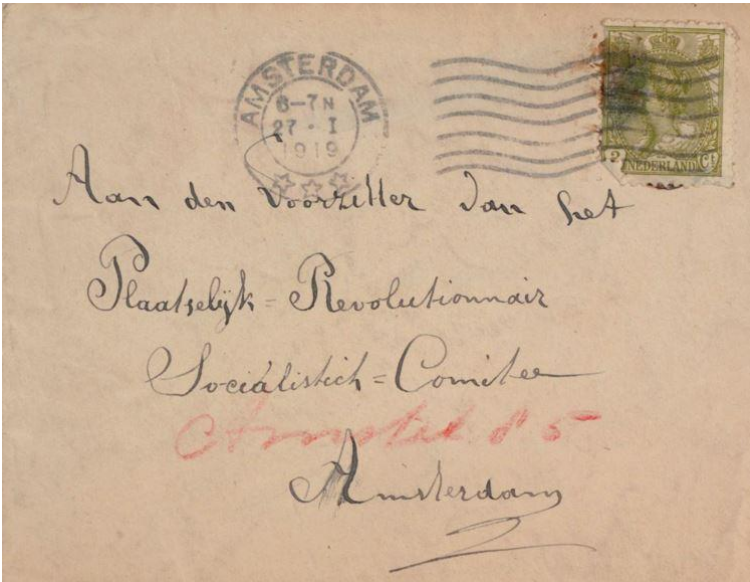 AMSTERDAM
6-7N
27·I
1919
2 Ct
NEDERLAND
Aan den Voorzitter van het
Plaatselijk=Revolutionnair
Socialistich=Comitee
Amstel 85
Amsterdam